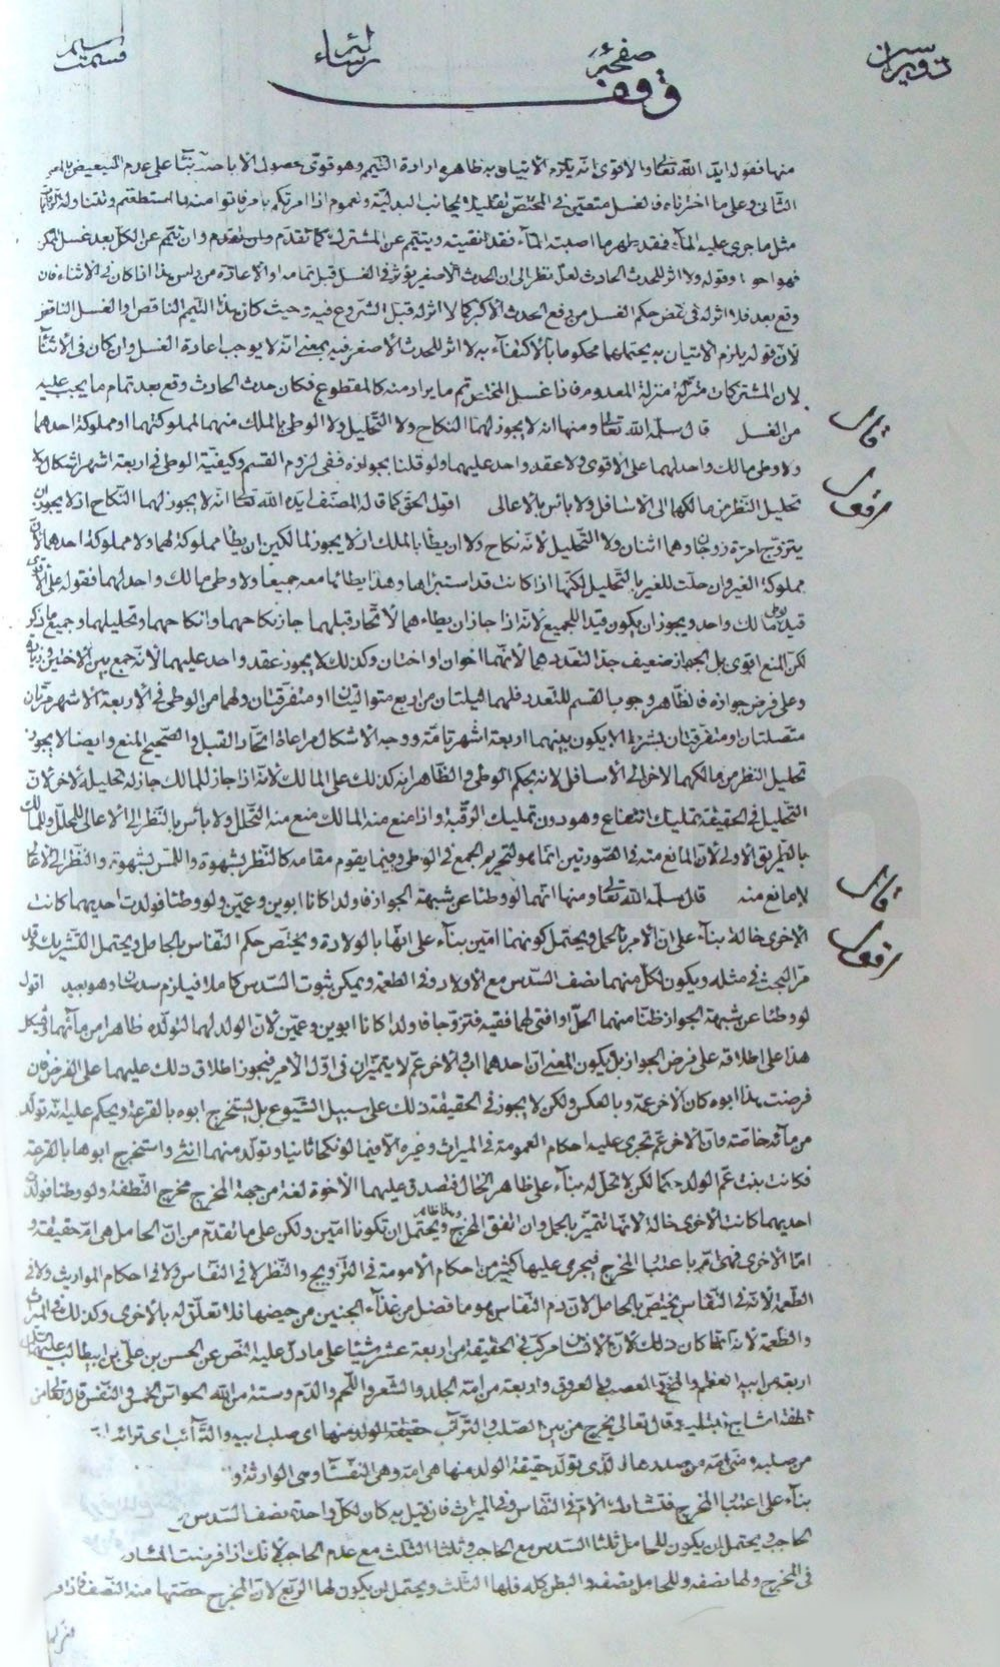 منها فقوله ايد الله تعالى والاقوى انه يلزم الاتيان به ظاهره ارادة التيمم وهو قوى حصول الاباحة بناء على عدم التبعيض
الثانى وعلى ما اخترناه فالغسل متعين فى المختص تقليلا لجانب البدلية ولعموم اذا امرتكم بامر فاتوا منه ما استطعتم وتتناوله
مثل ما جرى عليه الماء فقد طهر وما اصبته الماء فقد انقيته ويتيمم عن المشترك كما تقدم وان تقدم وان تيمم عن الكل بعد غسل
فهو احوط وقوله ولا اثر للحدث الحادث لعله نظر الى ان الحدث الاصغر يؤثر فى الغسل قبل تمامه اوالاعادة من راس هذا اذا كان فى الاثناء فان
وقع بعد فلا اثر له فى نقض حكم الغسل من رفع الحدث الاكبر كما لا اثر له قبل الشروع فيه وحيث كان هذا التيمم الناقص او الغسل الناقص
لان قوله يلزم الاتيان به يحتملهما محكوما بالاكتفاء به لا اثر للحدث الاصغر فيه بمعنى انه لا يوجب اعادة الغسل وان كان فى الاثناء
لان المشتركات منزلة منزلة المعدوم فاذا غسل المختص تم ما يراد منه كالمقطوع فكان حدث الحادث وقع بعد تمام ما يجب عليه
من الغسل قال سلمه الله تعالى ومنها انه لا يجوز لهما النكاح ولا التحليل ولا الوطى بالملك منهما لمملوكتهما او مملوكة احدهما
ولا وطى مالك واحد لهما على الاقوى ولا عقد واحد عليهما ولو قلنا بجوازه ففى لزوم القسم وكيفية الوطى فى اربعة اشهر اشكال ولا
تحليل النظر من مالكهما الى الاسافل ولا باس بالاعالى اقول الحق كما قاله المصنف ايده الله تعالى انه لا يجوز لهما النكاح اذ لا يجوز ان
يتزوج امرءة زوجان وهما اثنان ولا التحليل لانه نكاح ولا ان يطأ بالملك اذ لا يجوز لمالكين ان يطأ مملوكة لهما ولا مملوكة احدهما لان
مملوكة الغير وان حلت للغير بالتحليل لكنها اذا كانت قد استبراها وهذا يطائها معه جميعا ولا وطى مالك واحد لهما فقوله على الاقوى
قيد لوطى مالك واحد ويجوز ان يكون قيدا للجميع لانه اذا جاز ان يطاءهما لاتحاد قبلهما جاز نكاحهما وانكاحهما وتحليلهما وجميع ما ذكر
لكن المنع اقوى بل الجواز ضعيف جدا لتعددهما لانهما اخوان او اختان وكذلك لا يجوز عقد واحد عليهما لانه جمع بين الاختين
وعلى فرض جوازه فالظاهر وجوب القسم للتعدد فلهما ليلتان من اربع متواليتان او متفرقتان ولهما من الوطى فى الاربعة الاشهر مرتان
متصلتان او متفرقتان بشرط ان لا يكون بينهما اربعة اشهر تامة ووجه الاشكال مراعاة اتحاد القبل والصحيح المنع وايضا لا يجوز
تحليل النظر من مالكهما لاخر الى الاسافل لانه بحكم الوطى والظاهر انه كذلك على المالك لانه اذا جاز للمالك جاز له تحليله لاخر لان
التحليل فى الحقيقة تمليك انتفاع وهو دون تمليك الرقبة واذا منع منه المالك منع منه التحلل ولا باس بالنظر الى الاعالى للمحلل وللمالك
بالطريق الاولى لان المانع منه فى الصورتين انما هو لتحريم الجمع فى الوطى وفيما يقوم مقامه كالنظر بشهوة واللمس بشهوة والنظر الى الاعالى
لا مانع منه قال سلمه الله تعالى ومنها انهما لو وطئا عن شبهة الجواز فاولدا كانا ابوين وعمين ولو وطئا فولدت احديهما كانت
الاخرى خالة بناء على ان الامر بالحمل ويحتمل كونهما امين بناء على انها بالولادة ويختص حكم النفاس بالحامل ويحتمل التشريك وقد
مر البحث فى مثله ويكون لكل منهما نصف السدس مع الاولاد وفى الطعمة ويمكن ثبوت السدس كاملا فيلزم سدسان وهو بعيد اقول
لو وطئا عن شبهة الجواز ظنا منهما الحل او افتى لهما فقيه فتزوجا فاولدا كانا ابوين وعمين لان الولد لهما لتولده ظاهرا من مائهما
هذا على اطلاقه على فرض الجواز بل يكون المعنى ان احدهما اب والاخر عم لا يتميزان فى اول الامر فيجوز اطلاق ذلك عليهما على الفرض فان
فرضت هذا ابوه كان الاخر عمه وبالعكس ولكن لا يجوز فى الحقيقة ذلك على سبيل الشيوع بل يستخرج ابوه بالقرعة ويحكم عليه انه تولد
من مائه خاصة فان الاخر عم تجرى عليه احكام العمومة فى الميراث وغيره الا فيما لو نكحا ثانيا وتولد منهما انثى واستخرج ابوها بالقرعة
فكانت بنت عم الولد حكما لكن لا تحل له بناء على ظاهر الحال فتصدق عليهما الاخوة لغة من جهة المخرج مخرج النطفة ولو وطئتا فولدت
احديهما كانت الاخرى خالة لانها تتميز بالحمل وان اتفق المخرج ويحتمل ان تكونا امين ولكن على ما تقدم من ان الحامل هى ام حقيقة و
اما الاخرى فهى ام باعتبار المخرج فيجرى عليها كثير من احكام الامومة فى التزويج والنظر لا فى النفاس ولا فى احكام المواريث ولا فى
الطعمة لانه فى النفاس يختص بالحامل لان دم النفاس هو ما فضل من غذاء الجنين من حيضها فلا تعلق له بالاخرى وكذلك فى الميراث
والطعمة لانه انما كان ذلك لان الانسان مركب فى الحقيقة من اربعة عشر شيئا على ما دل عليه النص عن الحسن بن على بن ابيطالب عليهما السلام
اربعة من ابيه العظم والمخ والعصب والعروق واربعة من امه الجلد والشعر واللحم والدم وستة من الله الحواس الخمس والنفس قال تعالى من
نطفة امشاج نبتليه وقال تعالى يخرج من بين الصلب والترائب حقيقة الولد منهما اى صلب ابيه والترآئب اى ترائب
من صلبه ومنى امه من صدرها الذى تولد حقيقة الولد منها هى امه وهى النفساء وهى الوارثة و
بناء على اعتبار المخرج فتشارك الام فى النفاس وفى الميراث فان قيل به كان لكل واحدة نصف السدس
الحاجب ويحتمل ان يكون للحامل ثلثا السدس مع الحاجب وثلثا الثلث مع عدم الحاجب لانك اذا فرضت المشار
فى المخرج ولها نصفه وللحامل نصفه والبطن كله فلها الثلث ويحتمل ان يكون لها الربع لان المخرج حصتها منه النصف فاذا
قال
اقول
قال
اقول